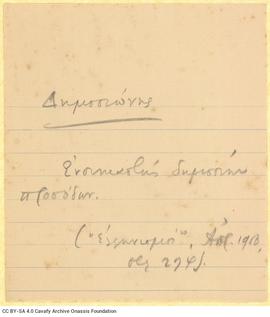 Δημοσιώνης
Ενοικιαστής δημοσίων
προσόδων.
("Ελληνισμός", Απρ. 1913,
σελ 294).
CC BY-SA 4.0 Cavafy Archive Onassis Foundation